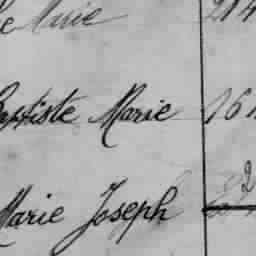 Marie 214
Baptiste Marie 16
Marie Joseph 2